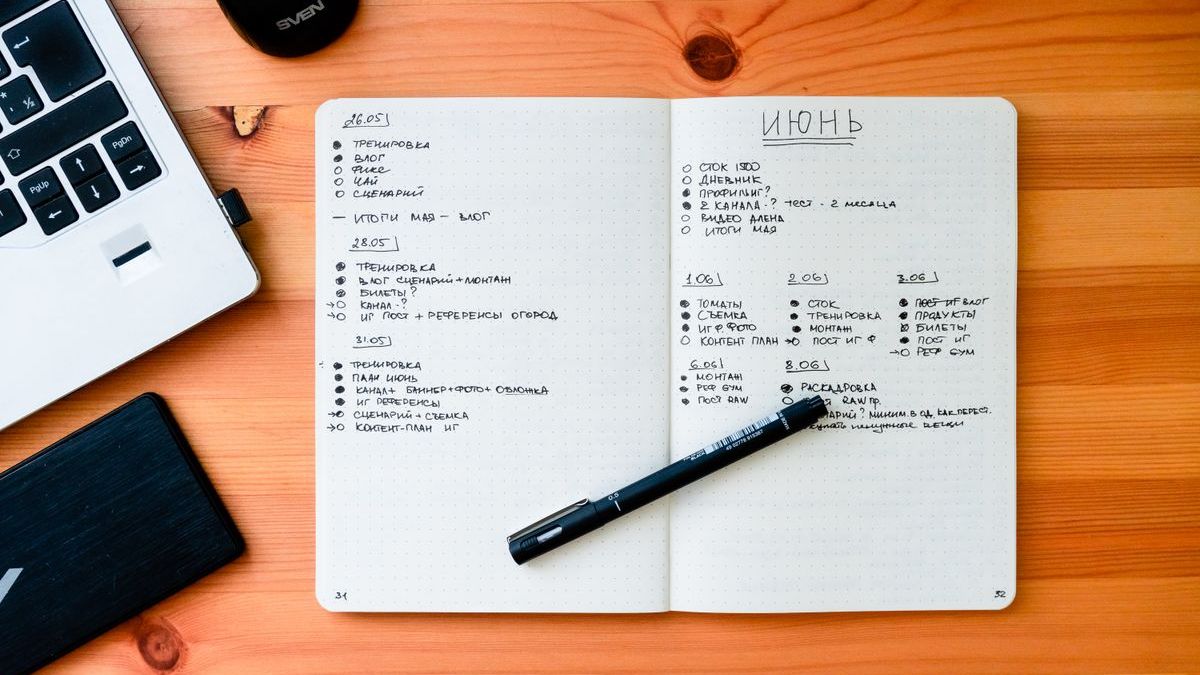 SVEN
PgDn
PgUp
26.05
ТРЕНИРОВКА
ВЛОГ
ФИКС
ЧАЙ
СЦЕНАРИЙ
— ИТОГИ МАЯ — ВЛОГ
28.05
ТРЕНИРОВКА
ВЛОГ СЦЕНАРИЙ + МОНТАЖ
БИЛЕТЫ?
→ КАНАЛ - ?
→ ИГ ПОСТ + РЕФЕРЕНСЫ ОГОРОД
31.05
ТРЕНИРОВКА
ПЛАН ИЮНЬ
КАНАЛ + БАННЕР + ФОТО + ОБЛОЖКА
ИГ РЕФЕРЕНСЫ
→ СЦЕНАРИЙ + СЪЕМКА
→ КОНТЕНТ-ПЛАН ИГ
31
ИЮНЬ
СТОК 1500
ДНЕВНИК
ПРОФИЛИГ?
2 КАНАЛА - ? ТЕСТ - 2 МЕСЯЦА
ВИДЕО АЛЕНА
ИТОГИ МАЯ
1.06
ТОМАТЫ
СЪЕМКА
ИГ Ф. ФОТО
КОНТЕНТ ПЛАН
2.06
СТОК
ТРЕНИРОВКА
МОНТАЖ
→ ПОСТ ИГ Ф
3.06
ПОСТ ИГ ВЛОГ
ПРОДУКТЫ
БИЛЕТЫ
ПОСТ ИГ
→ РЕФ GYM
6.06
МОНТАЖ
РЕФ GYM
ПОСТ RAW
8.06
РАСКАДРОВКА
RAW ПР.
МИНИМ. В ОД. КАК ПЕРЕСТ.
НЕНУЖНЫЕ ВЕЩИ
0.5
BLACK
32